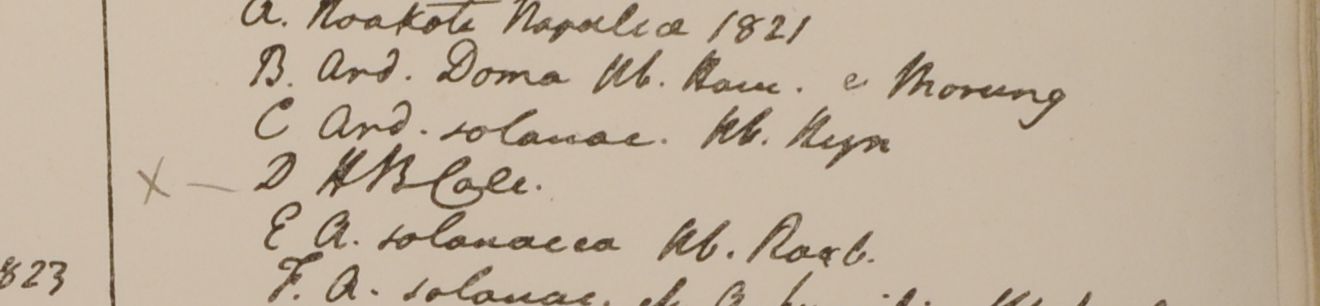 A. Noakote Napalia 1821
B. Ard. Doma Hb. Ham. e Morung
C Ard. solanac. Hb. Heyn
X — D HBCalc.
E A. solanacea Hb. Roxb.
823 F. A. solanac.